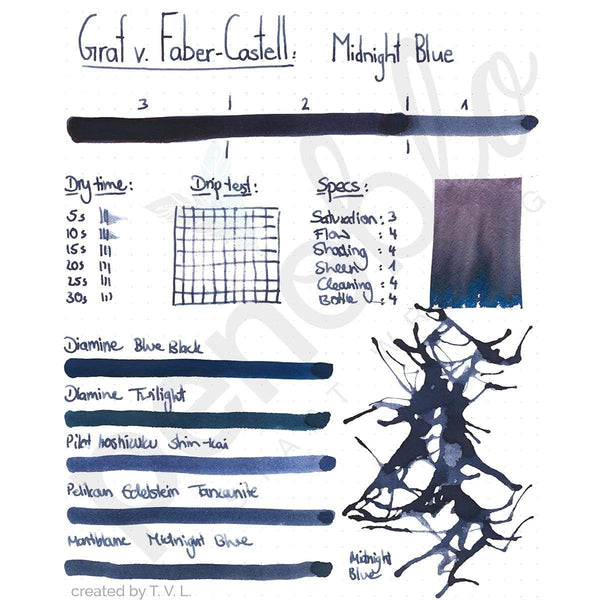 Graf v. Faber-Castell: Midnight Blue
3 2 1
Dry time: Drip test: Specs:
5s
10s
15s
20s
25s
30s
Saturation: 3
Flow : 4
Shading : 4
Sheen : 1
Cleaning : 4
Bottle : 4
Diamine Blue Black
Diamine Twilight
Pilot Iroshizuku Shin-kai
Pelikan Edelstein Tanzanite
Montblanc Midnight Blue
Midnight
Blue
created by T. V. L.